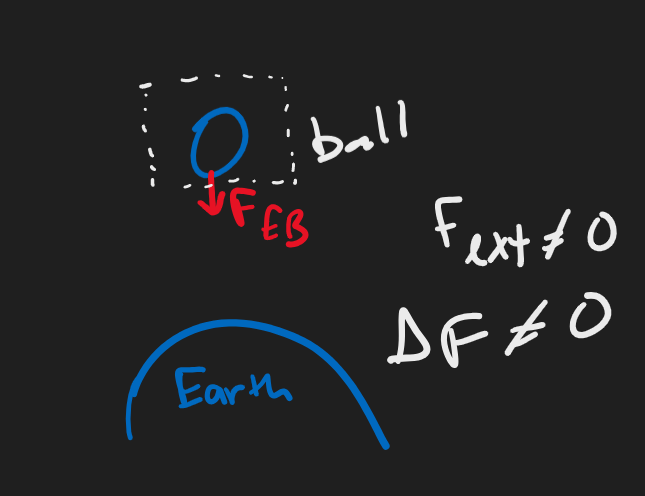 ball
F_EB
F_ext ≠ 0
ΔF ≠ 0
Earth